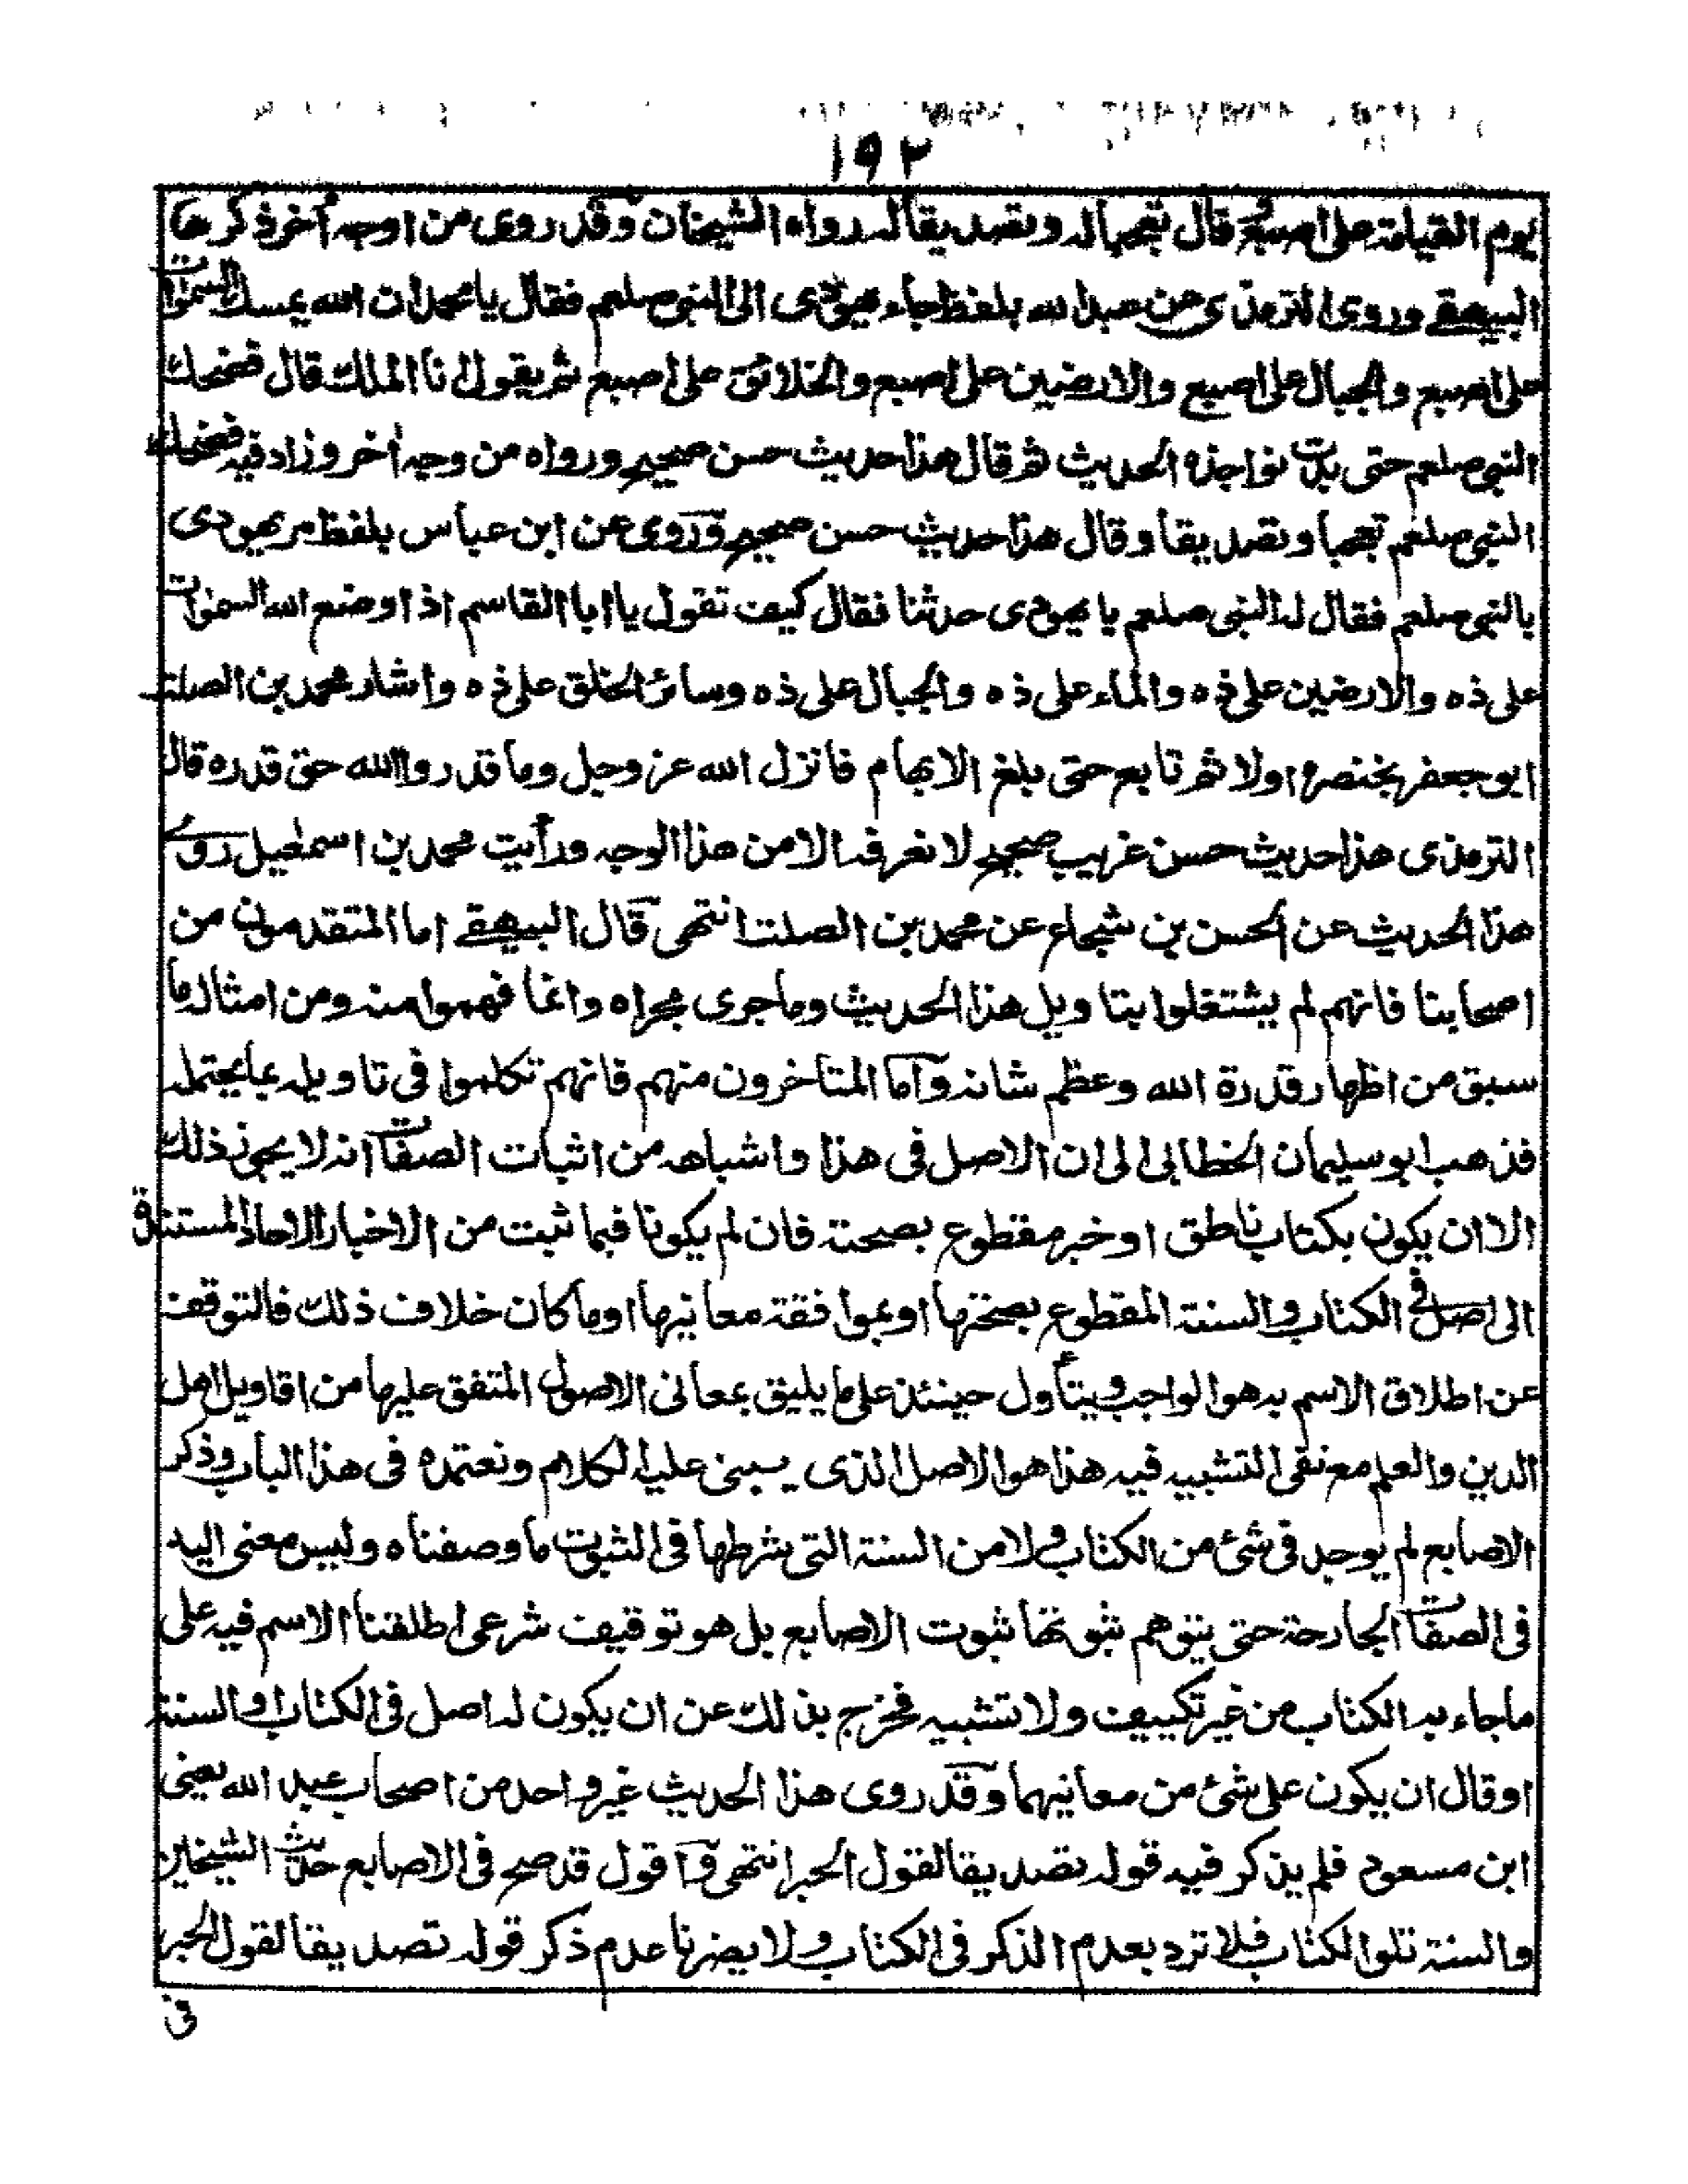 ١٩٢
يوم القيامة على اصبع قال تعجبا له وتصديقا له رواه الشيخان وقد روى من اوجه آخر ذكرها
البيهقے وروى الترمذى عن عبد الله بلفظ جاء يهودى الى النبى صلعم فقال يا محمد ان الله يمسك السموات
على اصبع والجبال على اصبع والارضين على اصبع والخلائق على اصبع ثم يقول انا الملك قال فضحك
النبى صلعم حتى بدت نواجذه الحديث ثم قال هذا حديث حسن صحيح ورواه من وجه آخر وزاد فيه فضحك
النبى صلعم تعجبا وتصديقا وقال هذا حديث حسن صحيح وروى عن ابن عباس بلفظ مر يهودى
بالنبى صلعم فقال له النبى صلعم يا يهودى حدثنا فقال كيف تقول يا ابا القاسم اذا وضع الله السموات
على ذه والارضين على ذه والماء على ذه والجبال على ذه وسائر الخلق على ذه واشار محمد بن الصلت
ابو جعفر بخنصره اولا ثم تابع حتى بلغ الابهام فانزل الله عز وجل وما قدروا الله حق قدره قال
الترمذى هذا حديث حسن غريب صحيح لا نعرفه الا من هذا الوجه ورأيت محمد بن اسمعيل روے
هذا الحديث عن الحسن بن شجاع عن محمد بن الصلت انتهى قال البيهقے اما المتقدمون من
اصحابنا فانهم لم يشتغلوا بتاويل هذا الحديث وما جرى مجراه وانما فهموا منه ومن امثاله ما
سبق من اظهار قدرة الله وعظم شانه واما المتاخرون منهم فانهم تكلموا فى تاويله بما يحتمله
فذهب ابو سليمان الخطابى الى ان الاصل فى هذا واشباهه من اثبات الصفات انه لا يجوز ذلك
الا ان يكون بكتاب ناطق او خبر مقطوع بصحته فان لم يكونا فبما ثبت من الاخبار الاحاد المستندة
الى اصل فى الكتاب والسنة المقطوع بصحتها او بموافقة معانيها او ما كان خلاف ذلك فالتوقف
عن اطلاق الاسم به هو الواجب ويتأول حينئذ على ما يليق بمعانى الاصول المتفق عليها من اقاويل اهل
الدين والعلم مع نفى التشبيه فيه هذا هو الاصل الذى يبنى عليه الكلام ونعتمده فى هذا الباب وذكر
الاصابع لم يوجد فى شئ من الكتاب ولا من السنة التى شرطها فى الثبوت ما وصفناه وليس معنى اليد
فى الصفات الجارحة حتى يتوهم بثبوتها ثبوت الاصابع بل هو توقيف شرعى اطلقنا الاسم فيه على
ما جاء به الكتاب من غير تكييف ولا تشبيه فخرج بذلك عن ان يكون له اصل فى الكتاب والسنة
او قال ان يكون على شئ من معانيهما وقد روى هذا الحديث غير واحد من اصحاب عبد الله يعنى
ابن مسعود فلم يذكر فيه قوله تصديقا لقول الحبر انتهى واقول قد صح فى الاصابع حديث الشيخين
والسنة تلو الكتاب فلا ترد بعدم الذكر فى الكتاب ولا يضرنا عدم ذكر قوله تصديقا لقول الحبر
فى